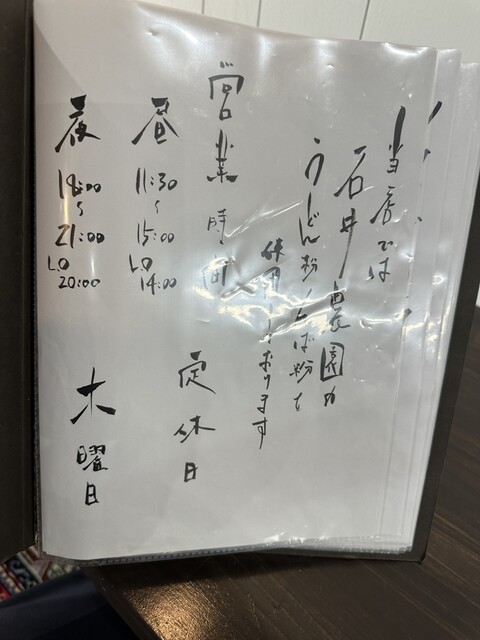 当店では
石井農園の
うどん粉そば粉を
使用しております
営業時間
昼
11:30
～
15:00
LO
14:00
夜
18:00
～
21:00
LO
20:00
定休日
木曜日